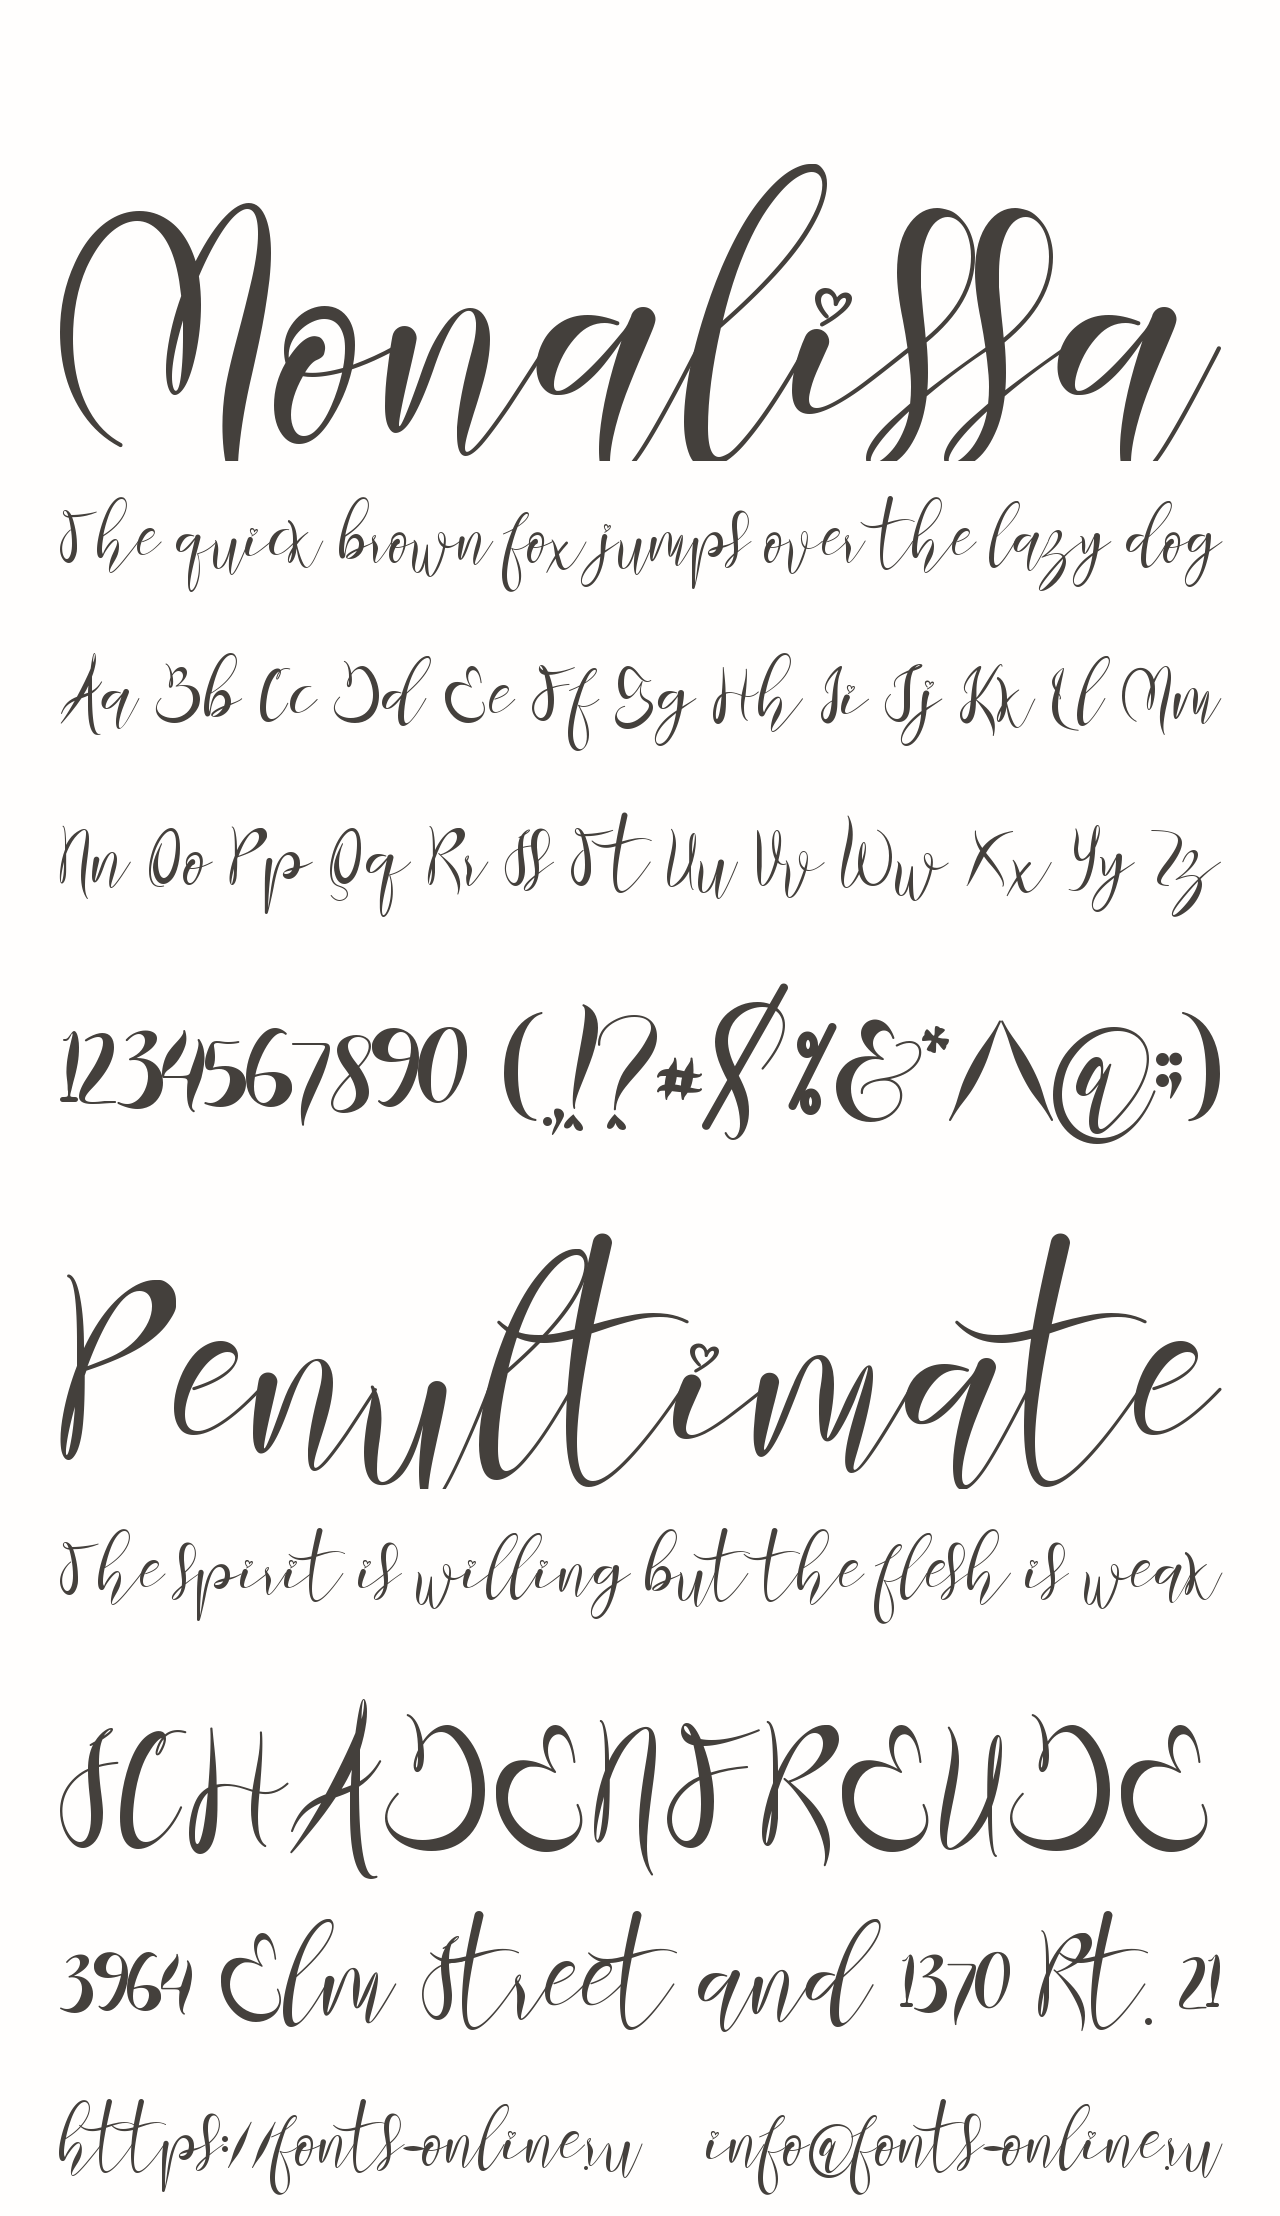 Monalissa
The quick brown fox jumps over the lazy dog
Aa Bb Cc Dd Ee Ff Gg Hh Ii Jj Kk Ll Mm
Nn Oo Pp Qq Rr Ss Tt Uu Vv Ww Xx Yy Zz
1234567890 (.,!?#$%&*/\@:;)
Penultimate
The spirit is willing but the flesh is weak
SCHADENFREUDE
3964 Elm Street and 1370 Rt. 21
https://fonts-online.ru info@fonts-online.ru